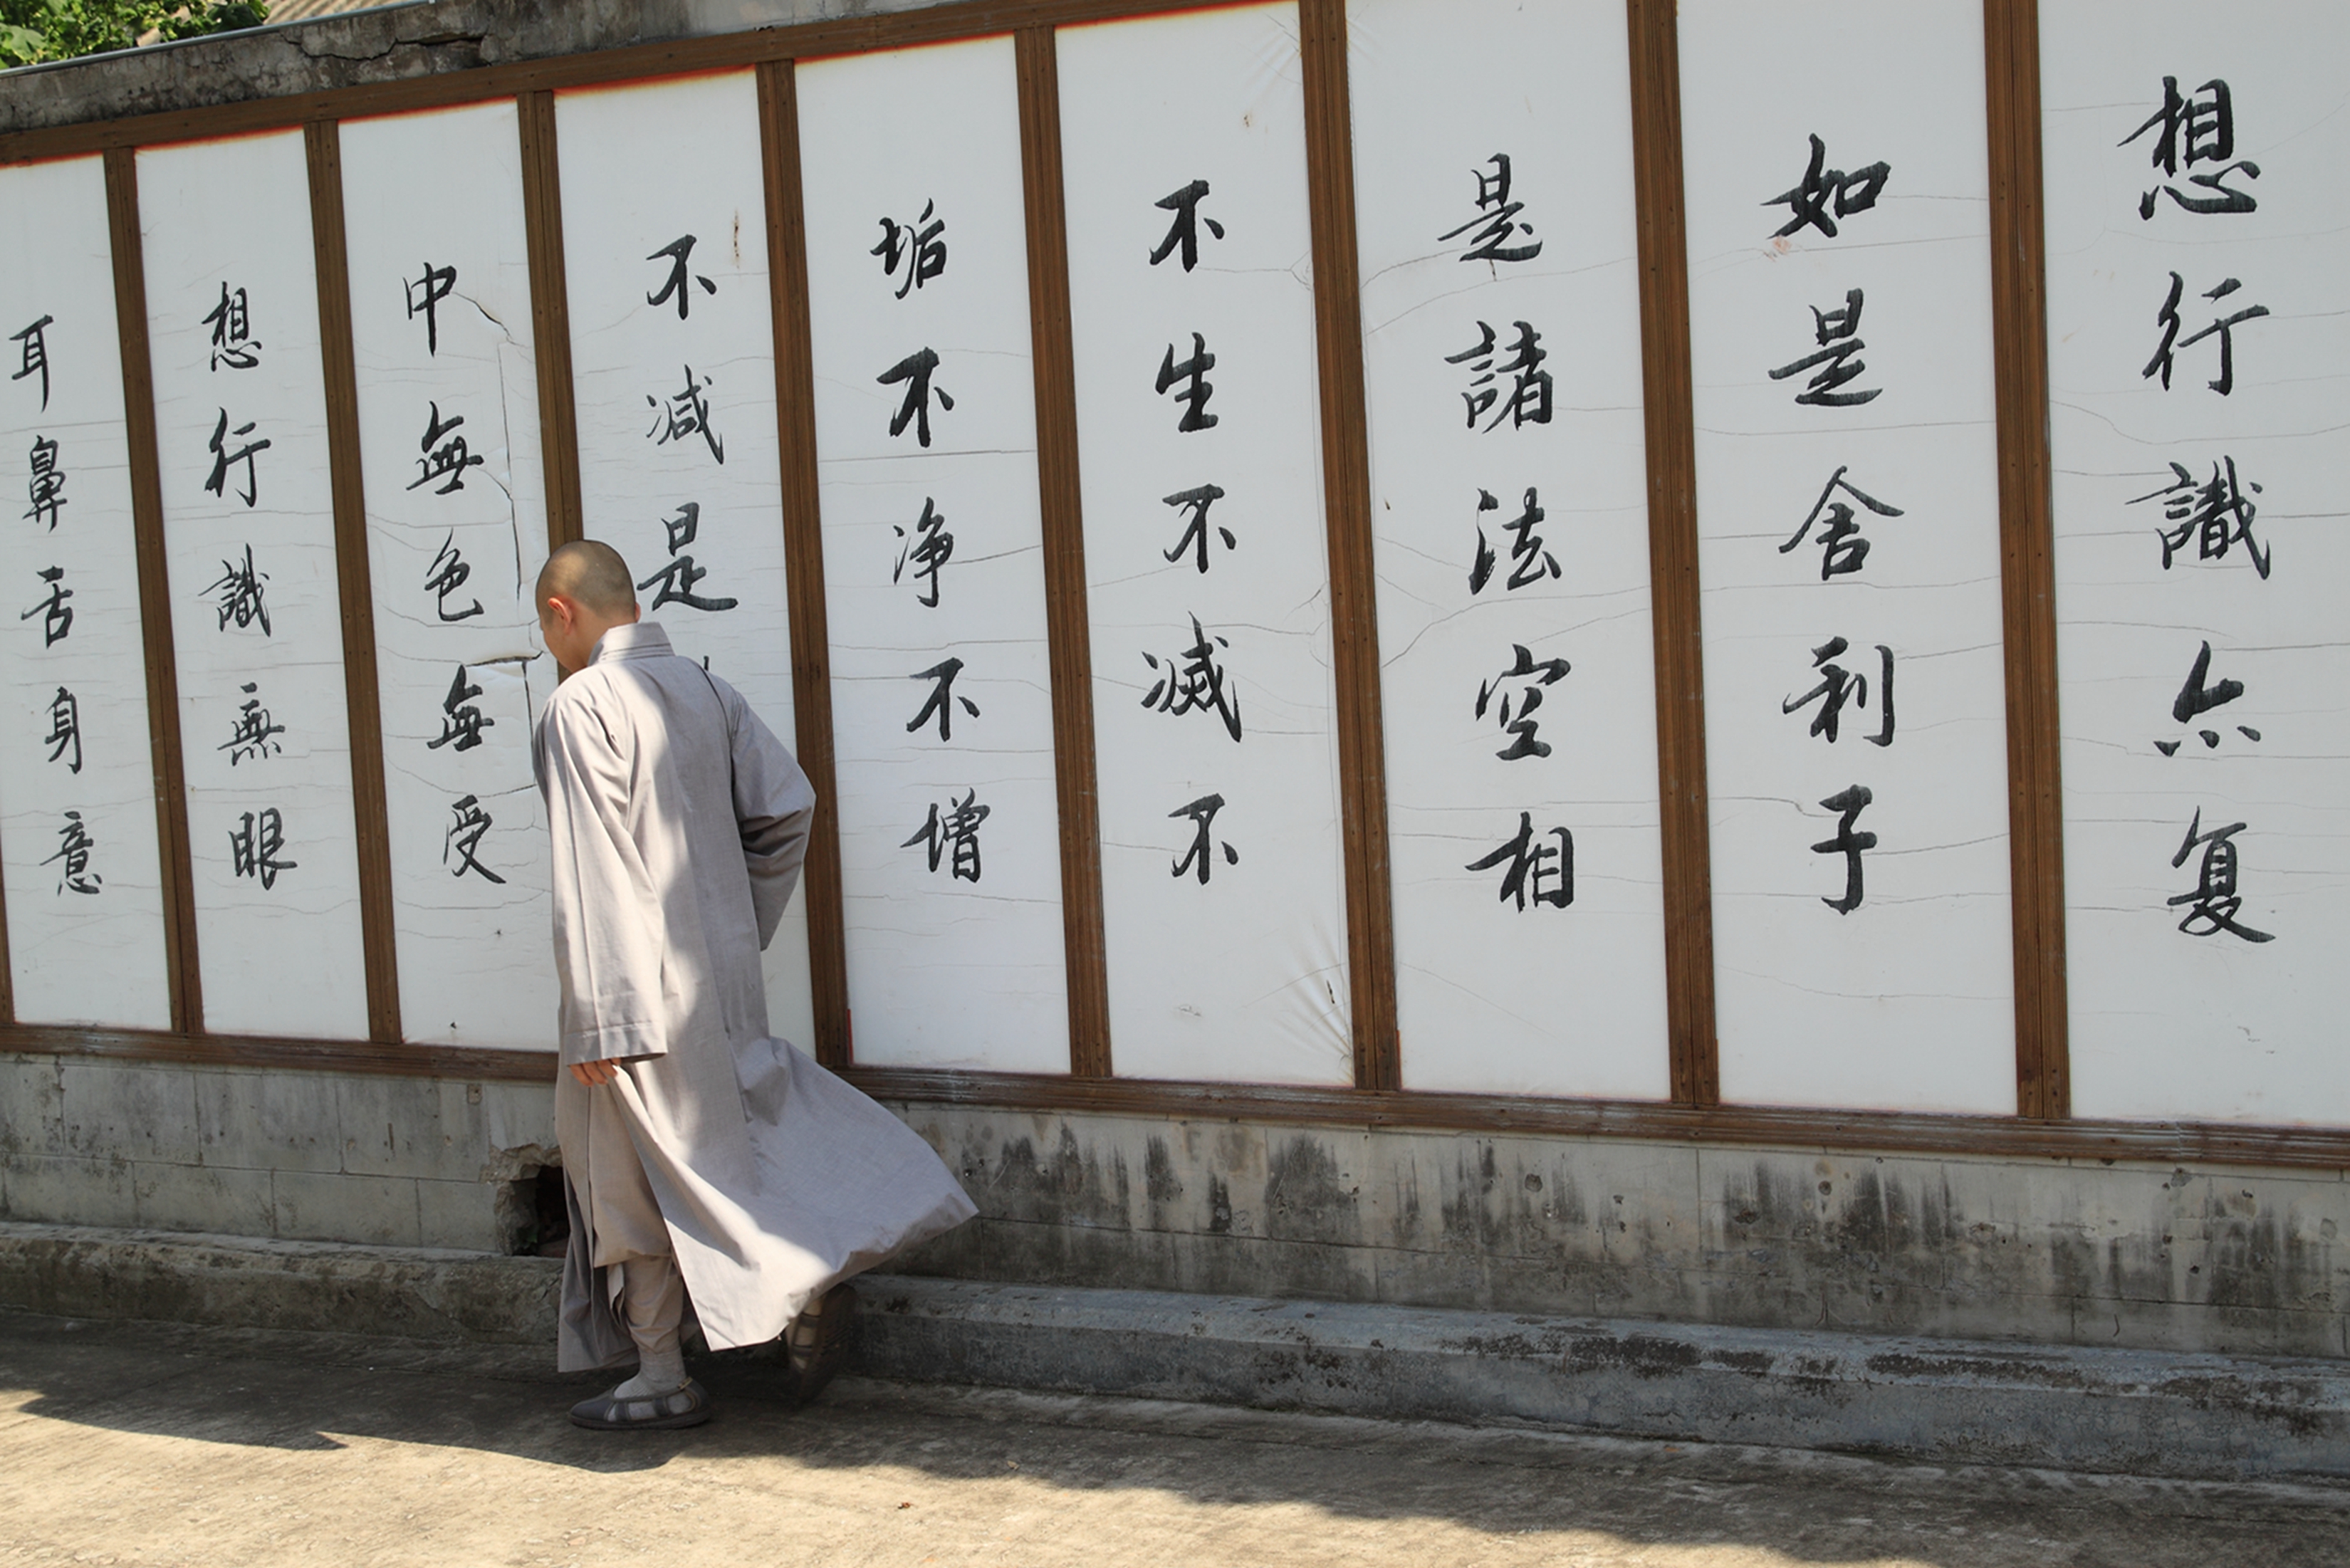 想行識亦复
如是舍利子
是諸法空相
不生不滅不
垢不净不增
不减是
中無色無受
想行識無眼
耳鼻舌身意